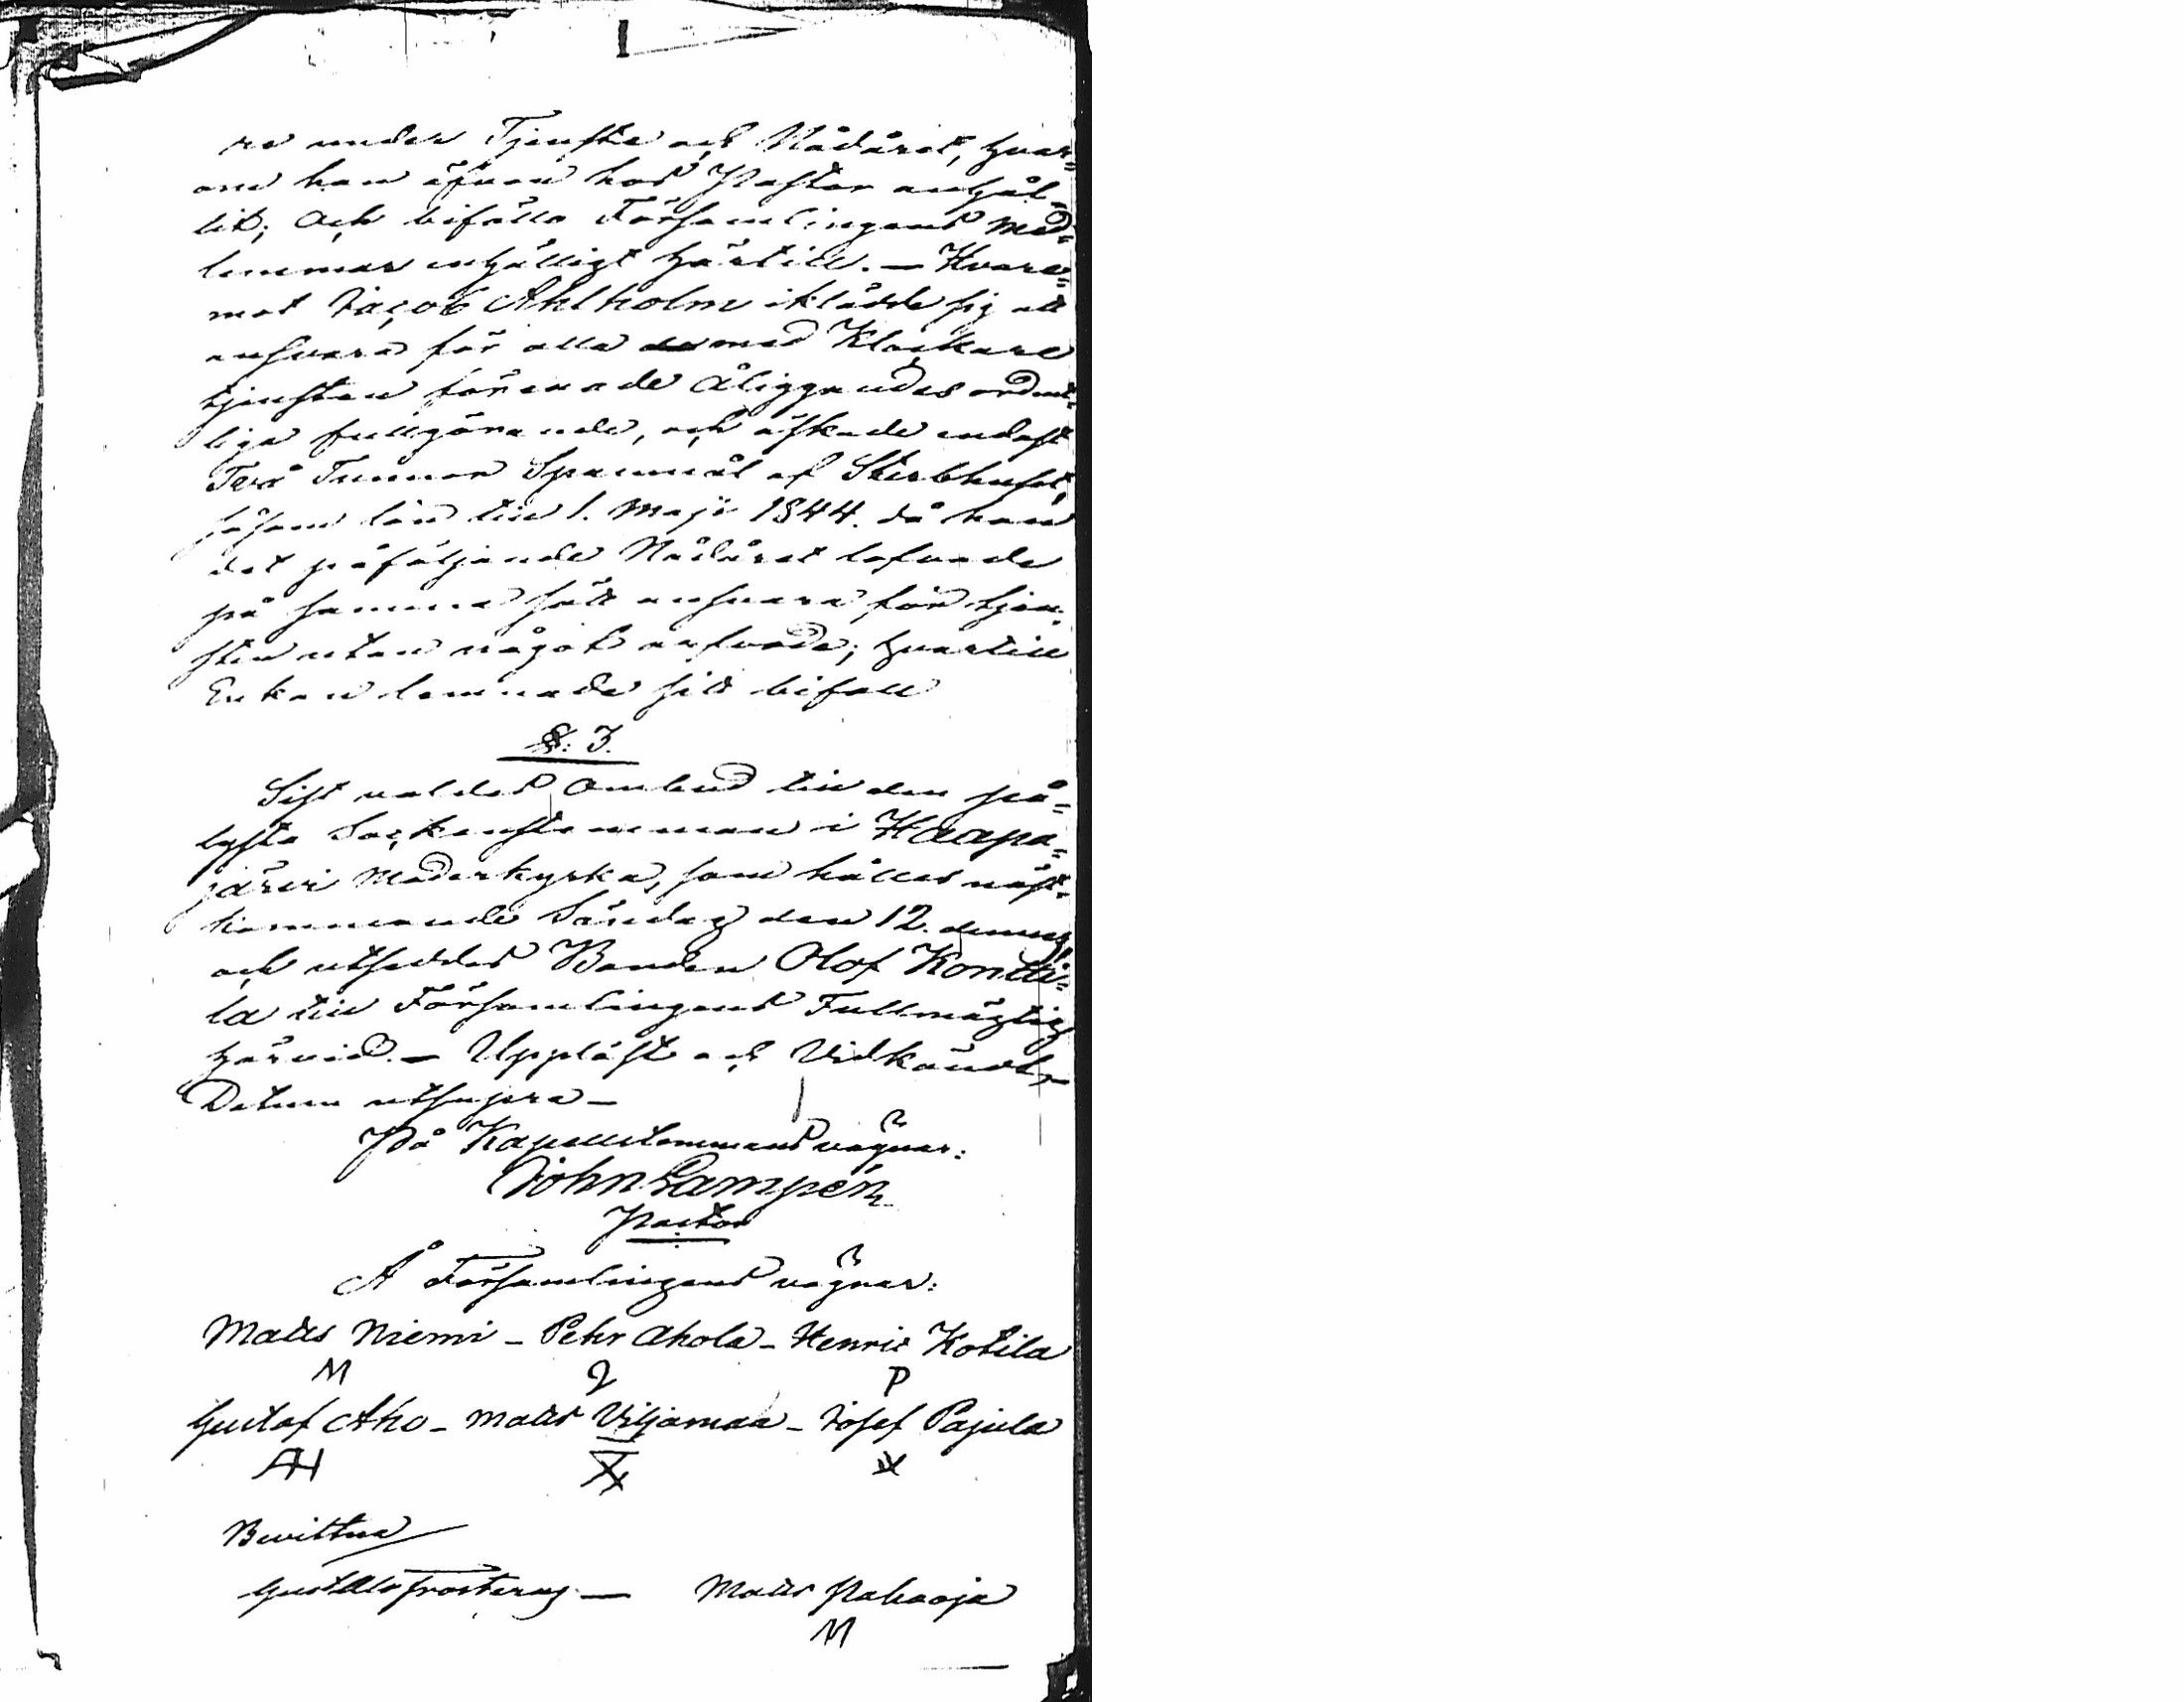 re under Tjenste och Nådåret, hvar=
om han äfven hos Pastor anhål=
lit; Och biföllo Församlingens Med=
lemmar enhälligt härtill. — Hvare=
mot Jacob Ahlholm iklädde sig att
ansvara för alla med Klockare
tjensten förenade åliggandes ordent=
liga fullgörande, och äskade endast
Två Tunnor Spannmål af Sterbhuset,
såsom lön till 1. Maji 1844. då han
det påföljande Nådåret lofvade
på samma sätt ansvara för tjen=
sten utan något arfvode; hvartill
Enkan lemnade sitt bifall
§: 3.
Sist valdes Ombud till den på=
lysta Sockenstemman i Haapa=
järvi Moderkyrka, som hålles näst=
kommande Söndag den 12. dennes,
och utseddes Bonden Olof Kontti=
la till Församlingens Fullmägtig
härvid. — Uppläst och Vidkändt,
Datum utsupra —
På Kapellstemmans vägnar:
John Lampén
Pastor
Å Församlingens vägnar:
Matts Niemi - Pehr Ahola - Henric Kotila
M P
Gustaf Aho - Matts Viljamaa - Josef Pajula
AH
Bevittna
Gust Frosterus — Matts Pahaoja
M